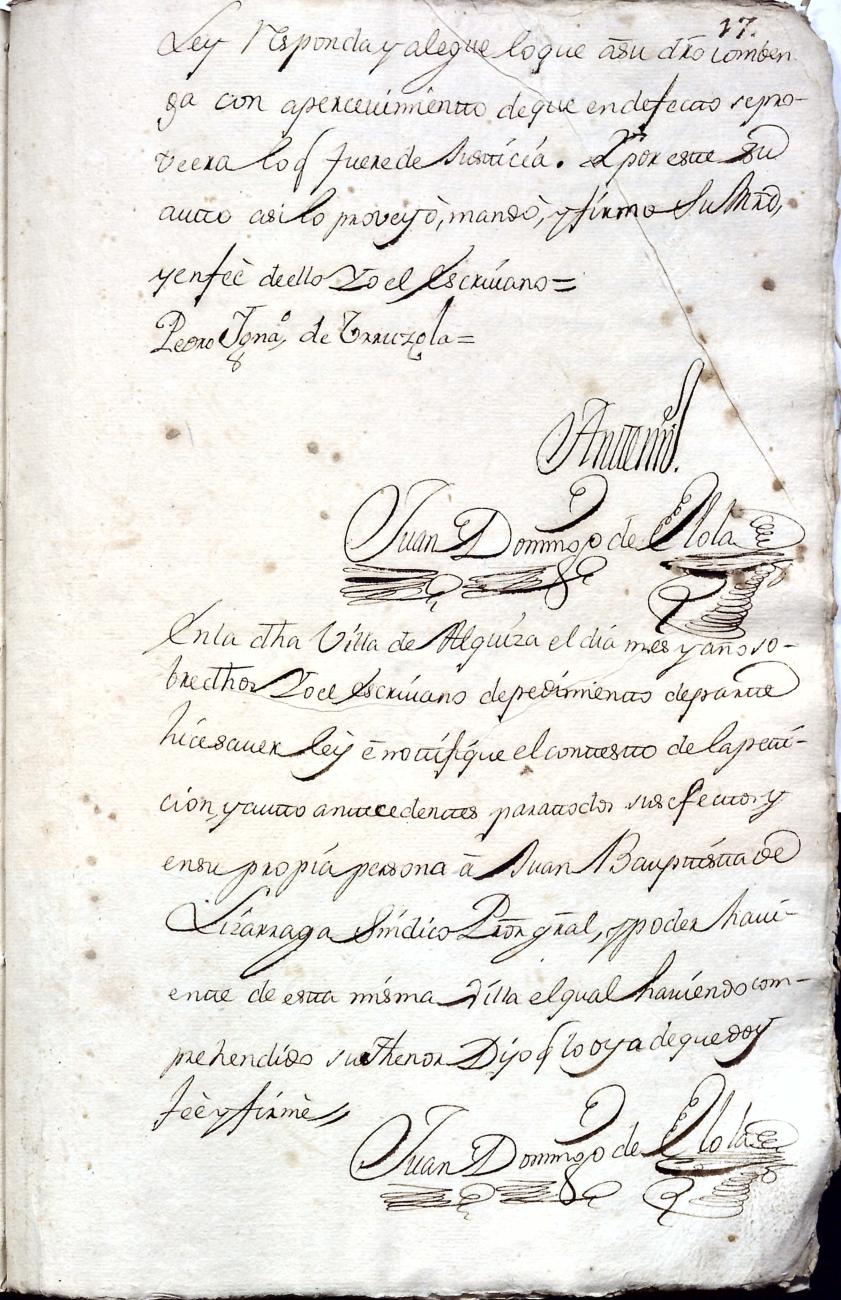 17.
Ley responda y alegue lo que a su dr̃o comben
ga con apercevimientto de que en defectto se pro-
veera lo q̃ fuere de Justticia. Y por estte su
autto asi lo proveyò, mandò, y firmo Su Mr̃d,
y en feè de ello Yo el Escrivano =
Pedro Igna.º de Yrruzola =
Antemi.
Juan Domingo de Elola
En la dha Villa de Alquiza el dia mes y año so-
bre dhos Yo el Escrivano de pedimientto de partte
hice saver leỳ è nottifique el conttestto de la petti-
cion, y autto anttecedenttes para ttodos sus efecttos y
en su propia persona à Juan Bauptistta de
Lizarraga Sindico Pror̃ gñal, y poder havi-
entte de estta misma Villa el qual haviendo com-
prehendido su thenor Dijo q̃ lo oya de que doy
feè y firmè
Juan Domingo de Elola